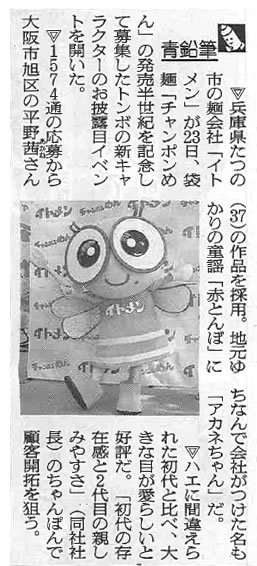 青鉛筆
▽兵庫県たつの
市の麺会社「イト
メン」が23日、袋
麺「チャンポンめ
ん」の発売半世紀を記念し
て募集したトンボの新キャ
ラクターのお披露目イベン
トを開いた。
▽1574通の応募から
大阪市旭区の平野茜さん
(37)の作品を採用。地元ゆ
かりの童謡「赤とんぼ」に
ちなんで会社がつけた名も
「アカネちゃん」だ。
▽ハエに間違えら
れた初代と比べ、大
きな目が愛らしいと
好評だ。「初代の存
在感と2代目の親し
みやすさ」（同社社
長）のちゃんぽんで
顧客開拓を狙う。
イトメン
チャンポンめん
イトメン